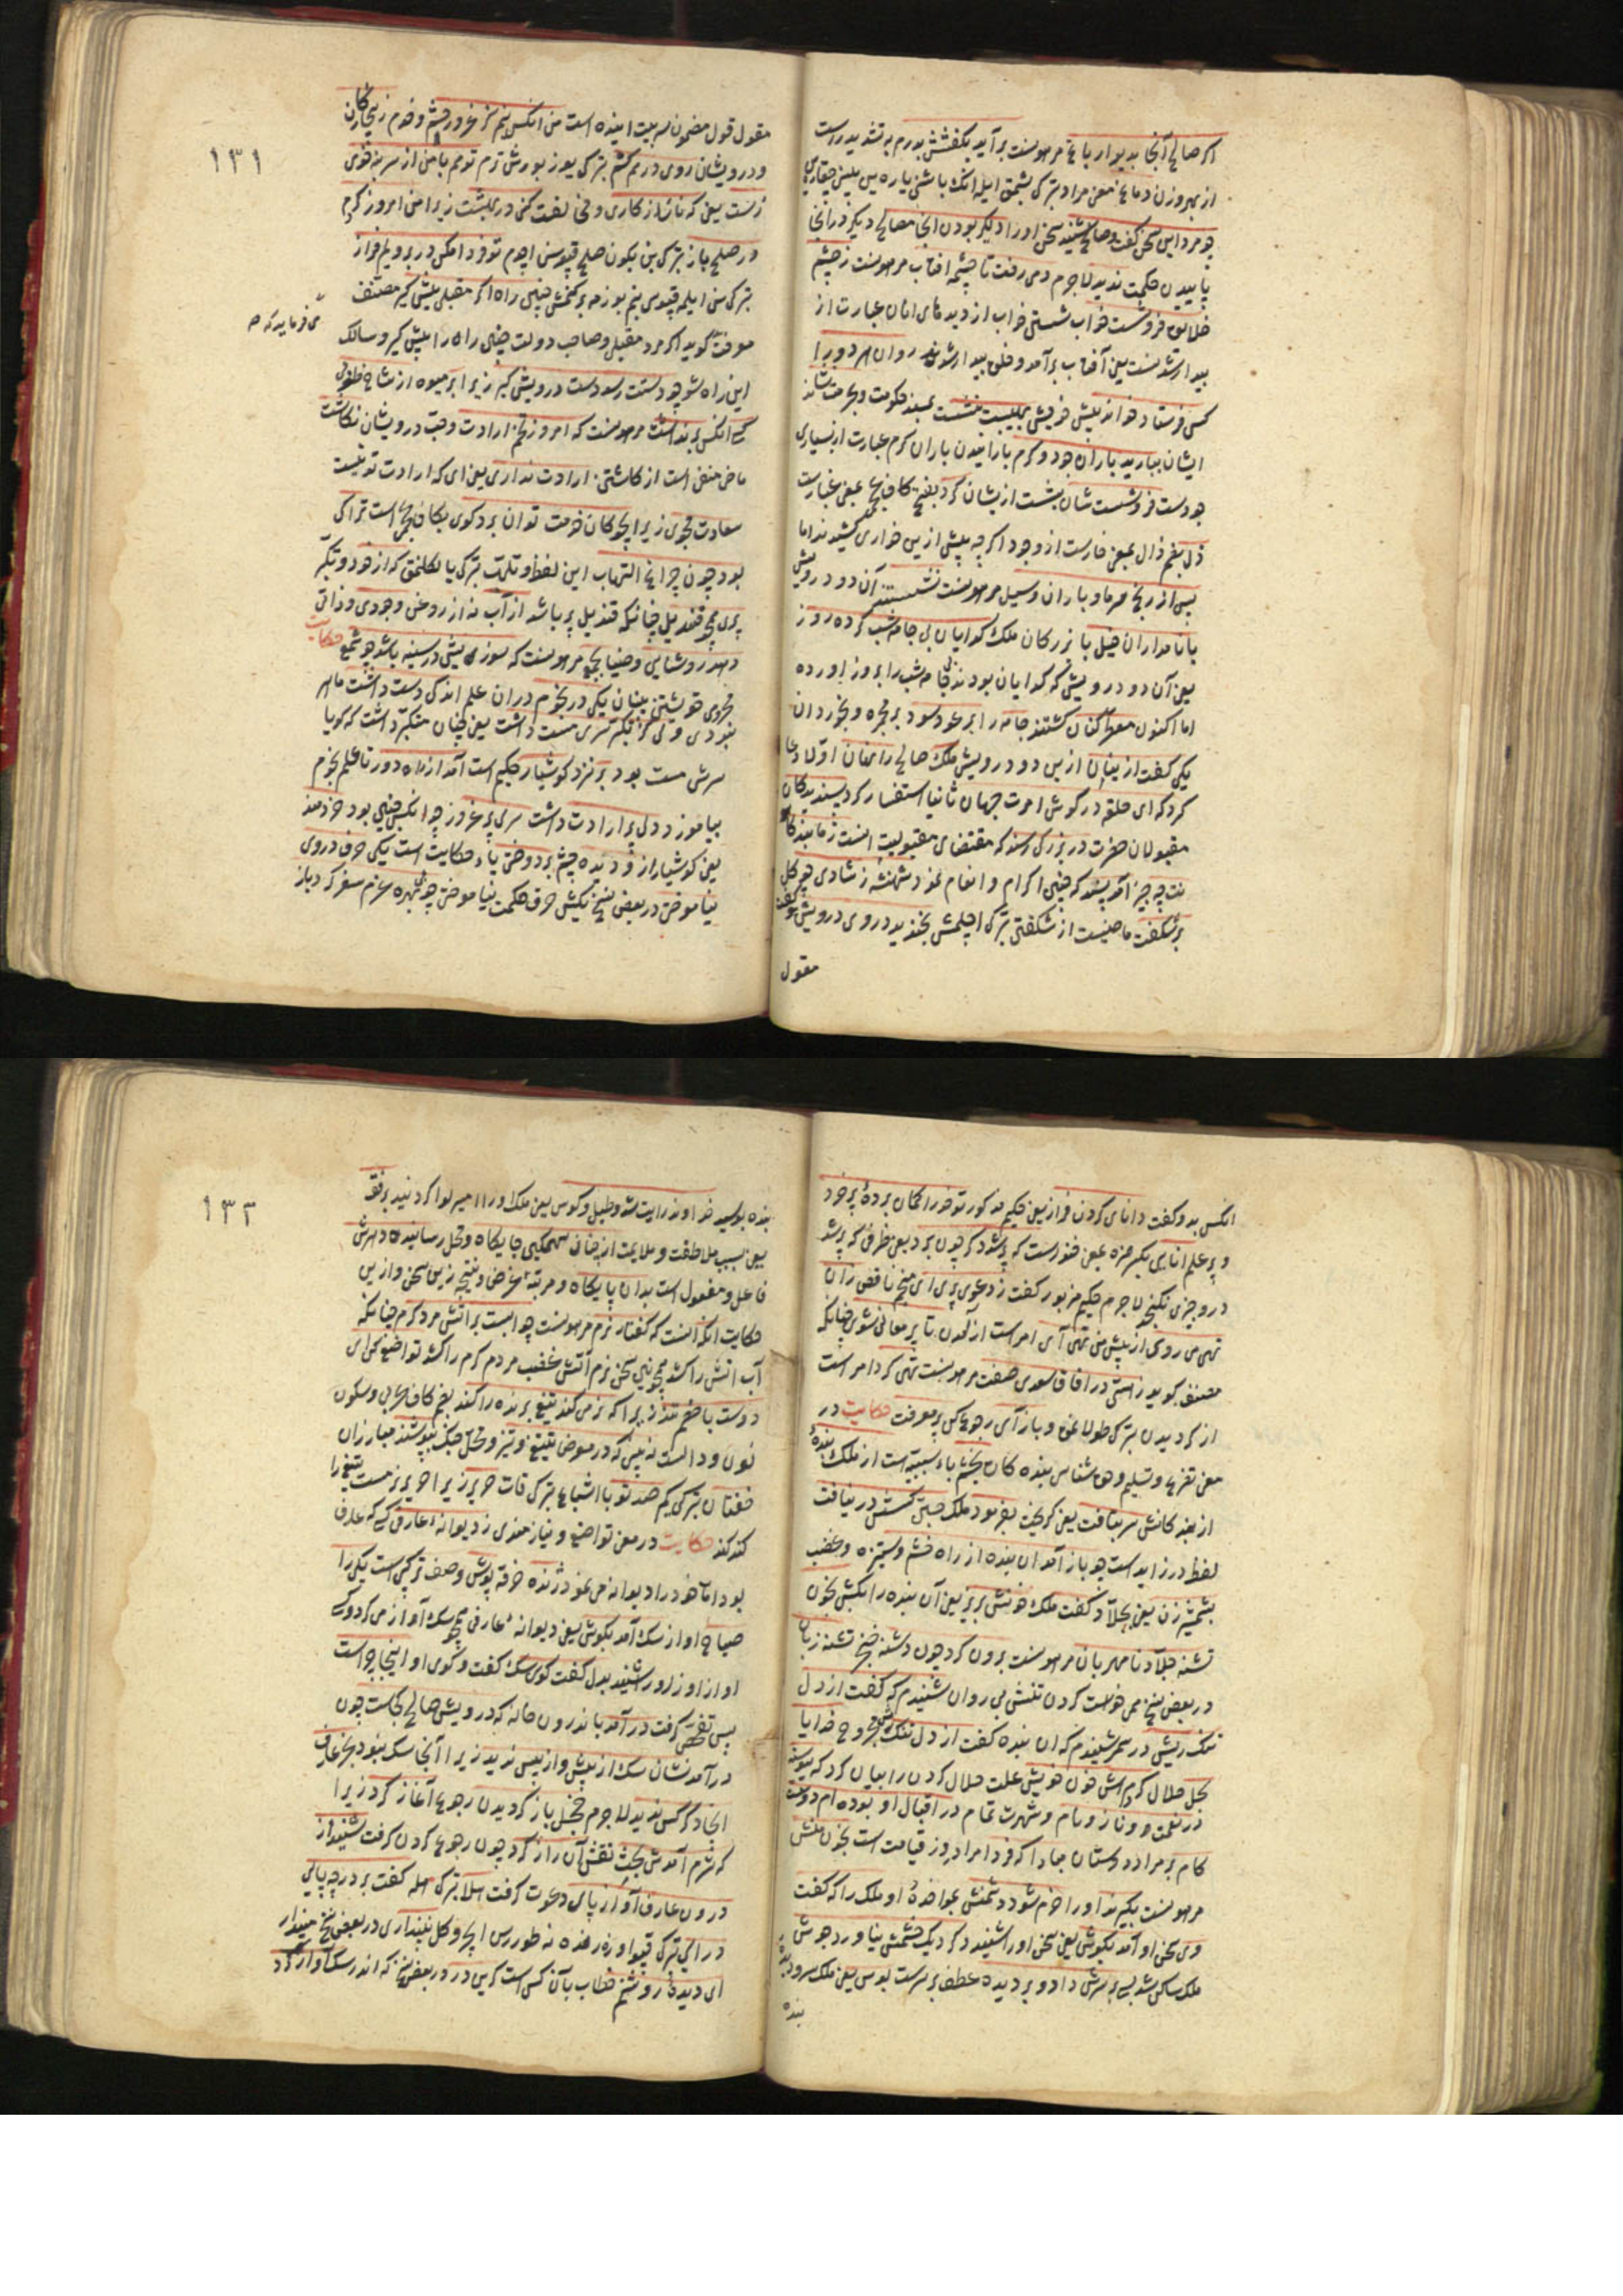 اگر صالح آنجا بدیوار باغ مرهونست برآید بکفشش بدرم به تشدید راست
از بهر وزن دماغ معنی مراد بترکی بشمق ایله انک باشنی یاره یین بلینی چقاره یم
چو مرد این سخن گفت و صالح شنید سخن او را دیگر بودن آنجا مصالح دیگر در آنجا
پاییدن حکمت ندید لاجرم دمی رفت تا چشمه آفتاب مرهونست ز چشم
خلایق فرو شست خواب شستن خواب از دیده‌های انان عبارت از
بیدار شدنست یعنی آفتاب برآمد و خلق بیدار شدند روان هر دو را
کس فرستاد و خواند پیش خویش بهیبت نشست بمسند حکومت و بحرمت نشاند
ایشان بباریدشان باران جود و کرم بارانیدن باران کرم عبارت از بسیاری
جودست فرو شستشان بشست از یشان گرد بفتح کاف عجمی بمعنی غبارست
ذل بضم ذال بمعنی خارست از وجود اگر چه پیش ازین خواری کشیدند اما
پس از رنج سرما و باران و سیل مرهونست نشستند آن دو درویش
با نامداران خیل با بزرکان ملک گدایان بی جامه شب کرده روز
یعنی آن دو درویش که گدایان بودند بی جامه شب را بروز آورده
اما اکنون معطر کنان گشتند جامه را بر عود سوز بر مجمره و بخوردان
یکی گفت از ینان ازین دو درویش ملک صالح را نهان اولا دعا
کرد که ای حلقه در گوش امرت جهان ثانیا استفسار کرد پسندیدکان
مقبولان حضرت در بزرگی رسند که مقتضای مقبولیت اینست ز ما بندگا
نت چه چیز آمد پسند که چنین اکرام و انعام نمود شهنشه ز شادی چو گل
بر شکفت ماضیست از شکفتن بترکی اچلمش بخندید در روی درویش و گفت
مقول
١٣١
مقول قول مضمون سه بیت آینده است من آنکس نیم کز غرور حشم و خدم ز بیچارگان
و درویشان روی در هم کشم بترکی یوز بورشدرم تو هم با من از سر بنه خوی
زشت یعنی که ناسازکاری و مخالفت کنی در بهشت زیرا من امروز کردم
در صلح باز بترکی بن بکون صلح قپوسن اچدم تو فردا مکن در برویم فراز
بترکی سن ایله قپوسی بنم یوزمه برکتمش چنین راه اگر مقبلی پیش گیر مصنف
می فرماید که صح
معرفت گوید اگر مرد مقبل و صاحب دولت چنین راه را پیش گیر و سالک
این راه شو چو دستت رسد دست درویش گیر زیرا بر میوه از شاخ طوبی
کسی آنکس برنداشت مرهونست که امروز تخم ارادت و محبت درویشان نکاشت
ماضی منفی است از کاشتن ارادت نداری یعنی ای که ارادت تو نیست
سعادت مجوی زیرا بچوکان خدمت توان برد گوی بکاف عجمی است ترا کی
بود چون چراغ التهاب این لفظ و تلهب بترکی یالکلنمق که از خود و تکبر
پری همچو قندیل چنانکه قندیل پر باشد از آب نه از روغن وجودی و ذاتی
دهد روشنایی و ضیا بجمع مرهونست که سوزیش در سینه باشد چو شمع حکایت
در خودی خویشتن بینان یکی در نجوم در آن علم اندکی دست داشت ماهر
نبودی ولی از تکبر سری مست داشت یعنی چنان متکبر داشت که گویا
سرش مست بود بر نزد گوشیار حکیم است آمد از راه دور تا علم نجوم
بیاموزد دلی پر ارادت داشت سری پر غرور چو آنکس چنین بود خردمند
یعنی گوشیار ازو دیده چشم بردوختی یاء حکایت است یکی حرف در وی
نیاموختی در بعض نسخ یکش حرف حکمت نیاموختی چو بی بهره عزم سفر کرد باز
انکس بدو گفت دانای گردن فراز یعنی حکیم مذکور تو خود را گمان برده پر خرد
و پر علم انایی بکسر همزه بمعنی ظرفست که پر شد دگر چون برد یعنی ظرفی که پر شد
درو چیزی نگنجد لاجرم حکیم مزبور گفت ز دعوی پری ای منجم ناقص زان
تهی می روی از پیش من تهی آی امر است از آمدن تا پر معانی شوی چنانکه
مصنف گوید ز هستی در آفاق سعدی صفت مرهونست تهی گرد امر است
از گردیدن بترکی طولانمق و باز آی رجوع کن پر معرفت حکایت در
معنی تضرع و تسلیم و حق شناسی بنده کان بخشم باء سببیه است از ملک بنده
از بندکانش سر بتافت یعنی گریخت بفرمود ملک جستن کسش در نیافت
لفظ در زاید است چو باز آمد آن بنده از راه خشم و ستیز و غضب
بشمشیر زن یعنی بجلاد گفت ملک خونش بریز یعنی آن بنده را بکش بخون
تشنه جلاد نامهربان مرهونست برون کرد چون دشنه خنجر تشنه زبان
در بعض نسخ می خواست کردن تنش بی روان شنیدم که گفت از دل
تنگ ریش در سحر شنیدم که آن بنده گفت از دل تنگ و مجروح خدایا
بحل حلال کردمش خون خویش علت حلال کردن را بیان کرد که پیوسته
در نعمت و ناز و نام و شهرت تمام در اقبال او بوده ام دوست
کام بر مراد دوستان مبادا که فردا مراد روز قیامت است بخون منش
مرهونست بگیرند او را خرم شود دشمنش بمواخذه او ملک را که گفت
وی سخن او آمد بگوش یعنی سخن او را شنید دگر دیک خشمش نیاورد جوش
ملک ساکن شد بسی بر سرش داد و بر دیده عطف بر سرست بوس یعنی ملک سر و دیده
بنده
١٣٢
بنده بوسید خداوند رایت شد و طبل و کوس یعنی ملک او را امیر لوا گردانید برفق
یعنی بسبب ملاطفت و ملایمت از چنان سهمکین جایکاه و محل رسانید دهرش
فاعل و مفعول است بدان پایکاه و مرتبه غرض و نتیجه زین سخن و ازین
حکایت انکه اینست که گفتار نرم مرهونست چو آبست بر آتش مرد گرم چنانکه
آب آتش را کشد همچنین سخن نرم آتش غضب مردم گرم را کشد تواضع کن ای
دوست با خصم تند زیرا که نرمی کند تیغ برنده را کند بضم کاف عربی و سکون
نون و دالست نه بینی که در معرض تیغ و تیر و محل جنک بپوشند مبارزان
خفتان بترکی کیم صد تو با اشباع بترکی قات حریر زیرا حریر نرمست تیغ را
کند کند حکایت در معنی تواضع و نیازمندی ز دیوانه عارف کسی که عارف
بود اما خود را دیوانه می نمود ژنده خرقه پوش وصف ترکیبی است یکی را
صباح آواز سک آمد بگوش یعنی دیوانه عارف همچو سک آواز می کرد و کسی
آواز او از دور شنید بدل گفت کوی سک گفت و کوی او اینجا چراست
پس تفحص گرفت درآمد باندرون خانه که درویش صالح کجاست چون
درآمد نشان سک از پیش و از پس ندید زیرا آنجا سک نبود بجز عارف
آنجا دگر کس ندید لاجرم خجل باز گردیدن رجوع آغاز کرد زیرا
که شرم آمدش بحث نقش آن راز کرد چون رجوع کردن گرفت شنید از
درون عارف آواز پای دعوت گرفت هلا بترکی اهله گفت بر در چه پایی
درآی بترکی قپو اوزره نه طوررسن ایچرو کل نپنداری در بعض نسخ مپندار
ای دیده روشنم خطاب بآن کس است کزین در در بعض نسخ که اندر سک آواز کرد